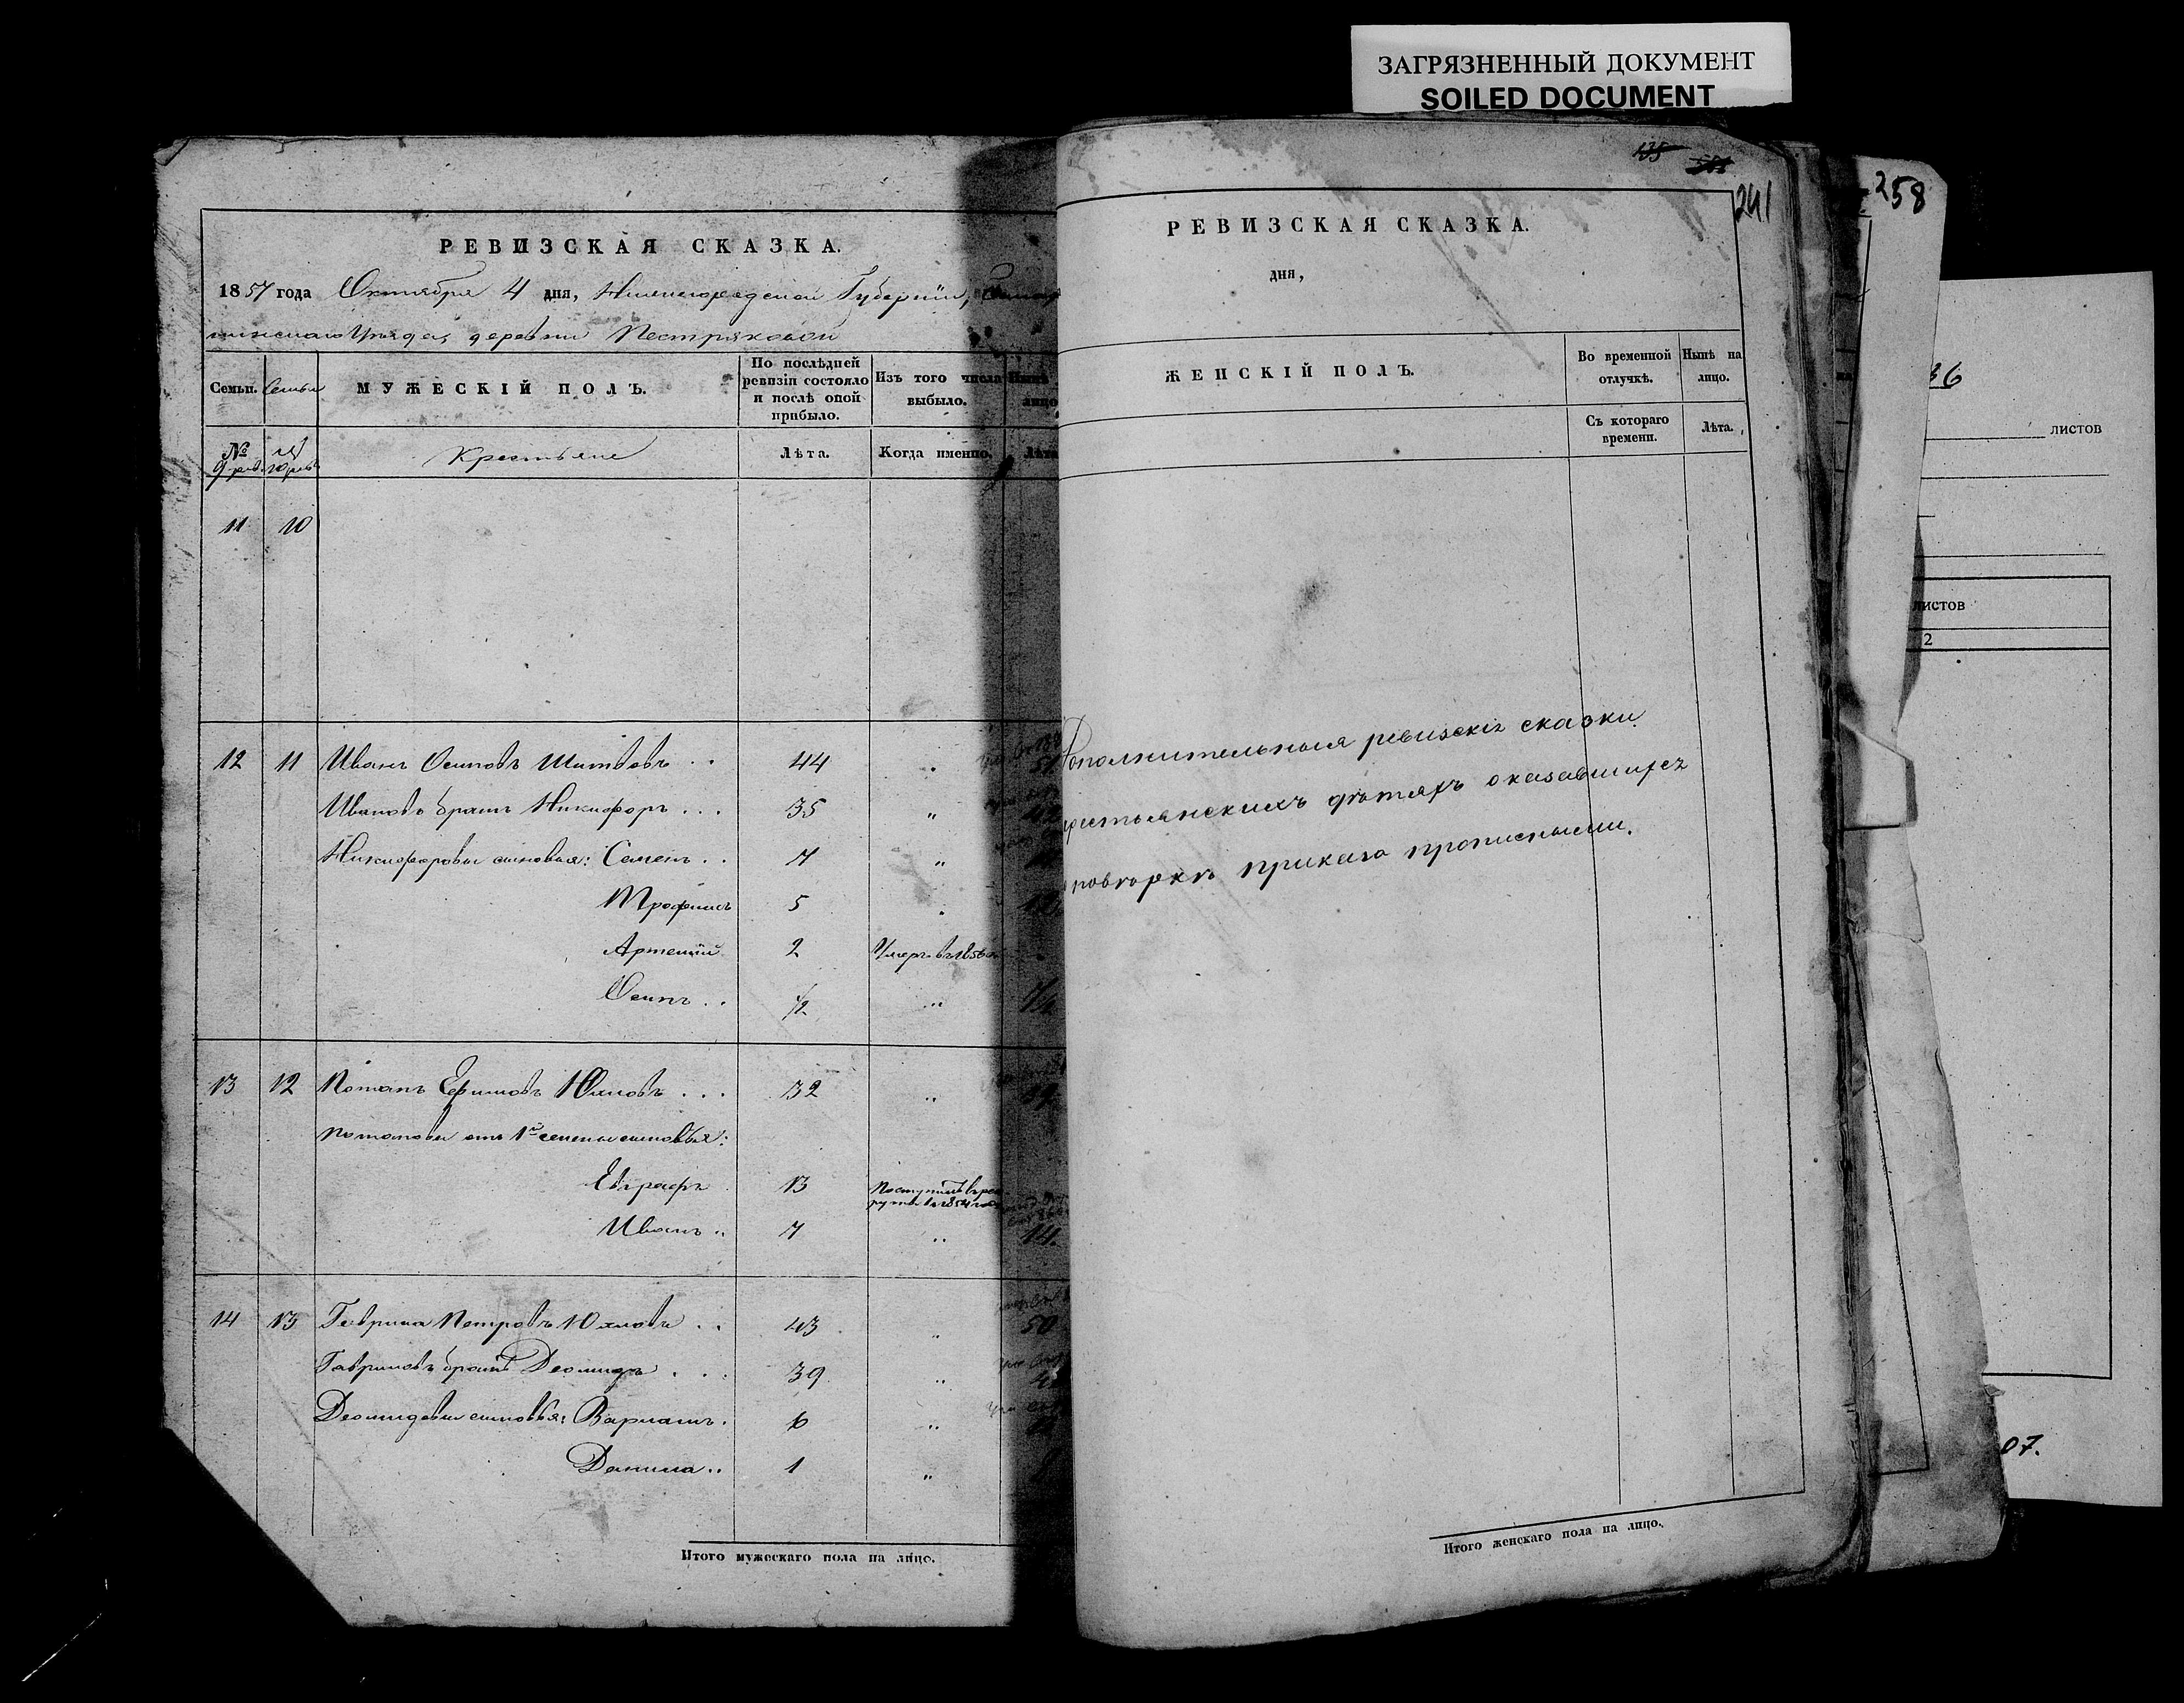 ЗАГРЯЗНЕННЫЙ ДОКУМЕНТ
SOILED DOCUMENT
РЕВИЗСКАЯ СКАЗКА.
1857 года Октября 4 дня, Нижегородской Губернии,
уезда, деревни Пестряковой
Семьи.
Семьи
МУЖЕСКІЙ ПОЛЪ.
По послѣдней ревизіи состояло и послѣ оной прибыло.
Изъ того числа выбыло.
№
9 рев.
10 рев.
Крестьяне
Лѣта.
Когда именно.
Лѣта
11 10
12 11 Иванъ Осиповъ . . 44 51
Ивановъ братъ Никифоръ . . . 35 "
Никифоровы сыновья: Семенъ . . 7 "
Трофимъ 5
Артемій 2 Умеръ въ 1856
Осипъ . . 1/2 "
13 12 Потапъ Ефимовъ Юлновъ . . . 32 "
Потаповы отъ 1й жены сыновья:
Евграфъ 13 Поступилъ въ рекруты въ 1854 году
Иванъ " 7 " 14.
14 13 Гаврила Петровъ Юлновъ . . 43 " 50
Гавриловъ братъ Деомидъ . . . 39 "
Деомидовы сыновья: Варламъ . 6 "
Данила " 1 "
Итого мужескаго пола на лицо.
135
241
РЕВИЗСКАЯ СКАЗКА.
дня,
ЖЕНСКІЙ ПОЛЪ.
Во временной отлучкѣ.
Нынѣ на лицо.
Съ котораго времени.
Лѣта.
ополнительныя ревизскія сказки
рестьянскихъ дѣтяхъ оказавшихся
повѣркѣ приказа прописными.
Итого женскаго пола на лицо.
258
36
листов
листов
2
07.